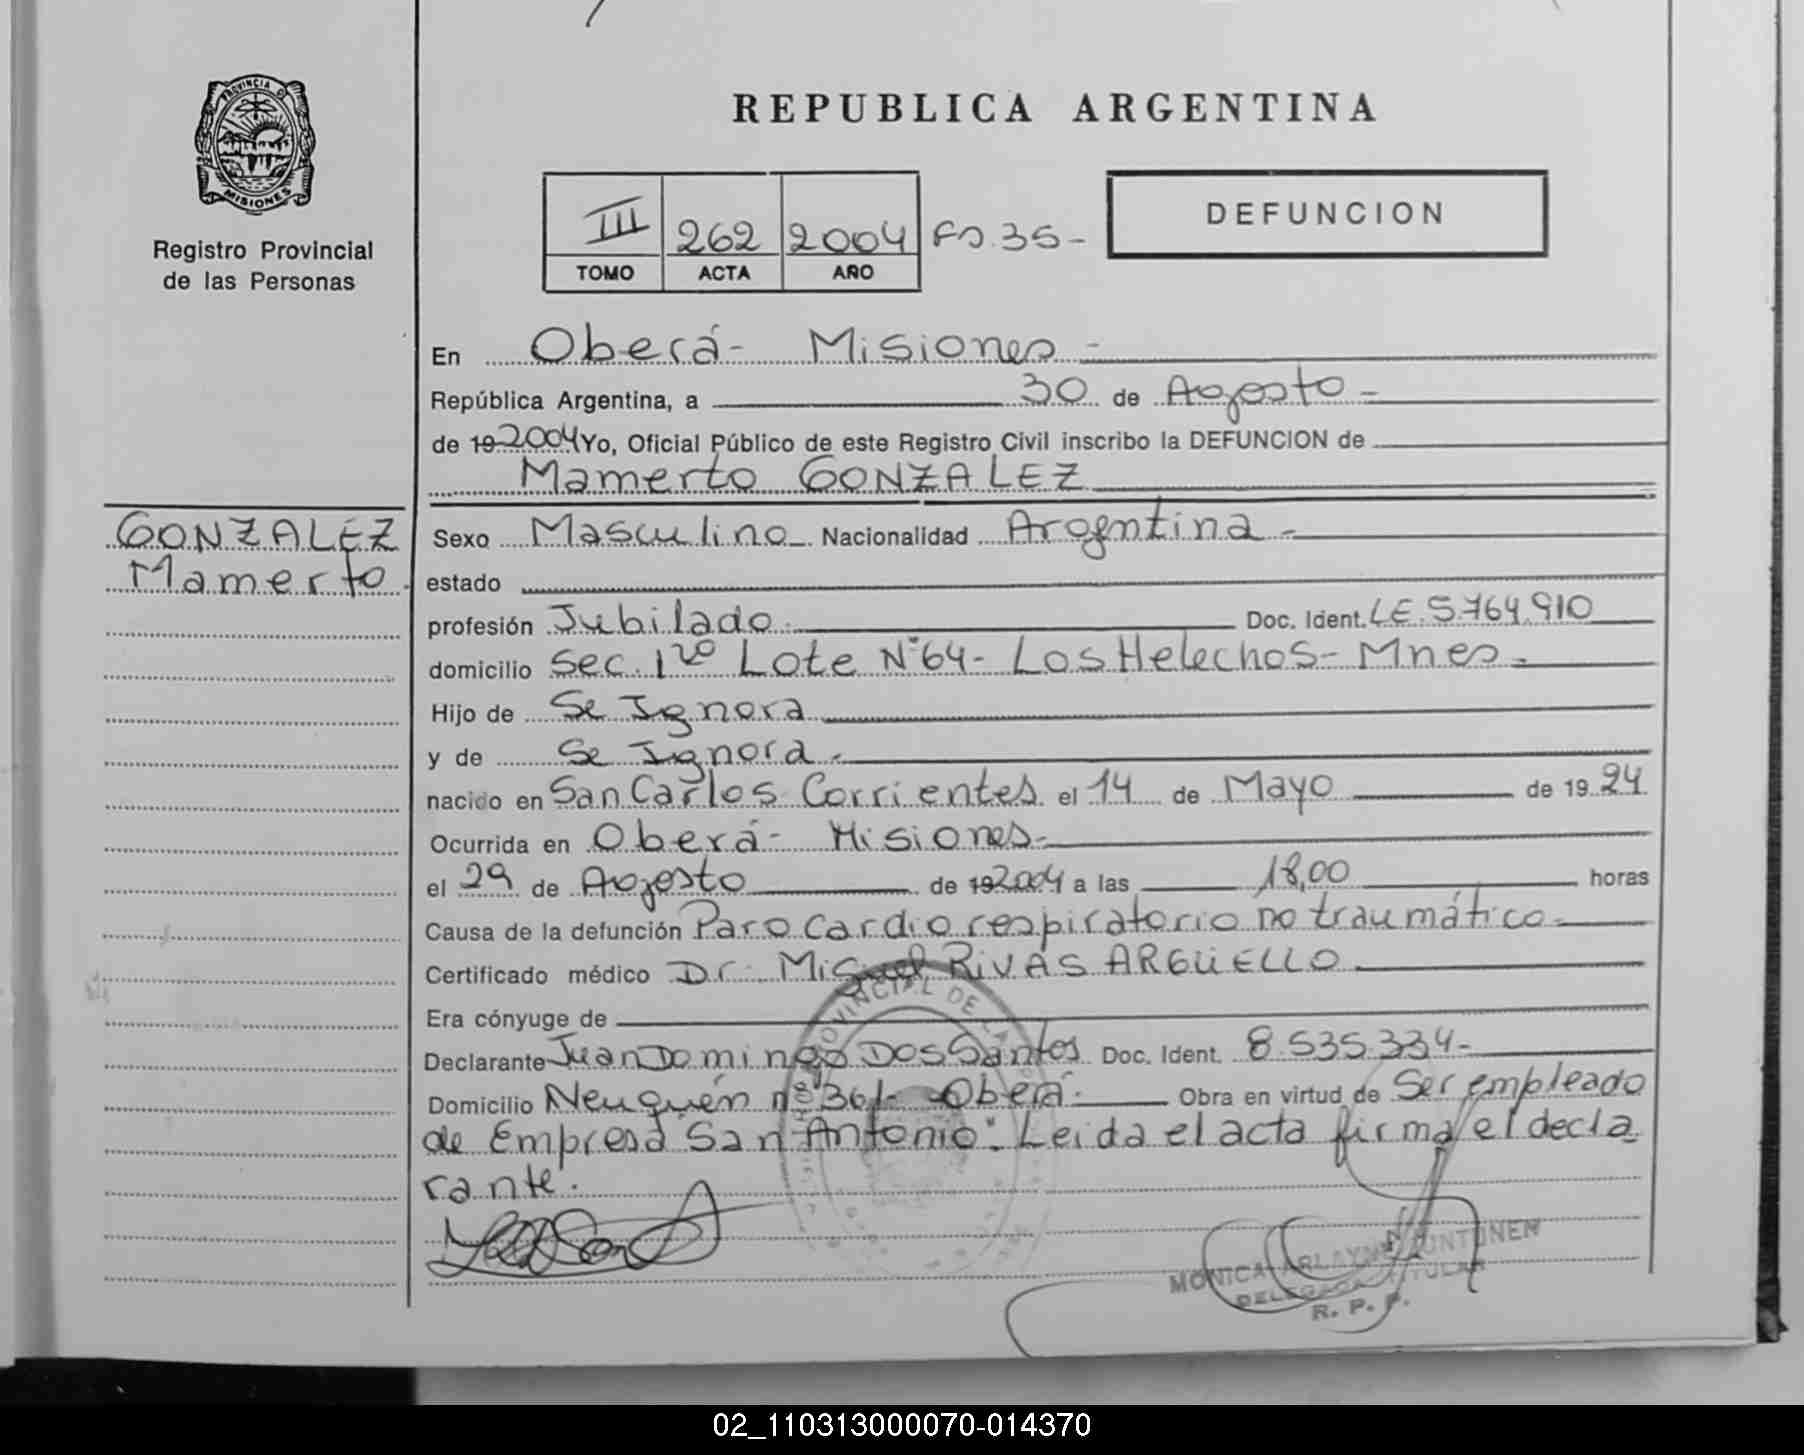 PROVINCIA DE
MISIONES
Registro Provincial
de las Personas
REPUBLICA ARGENTINA
III 262 2004 Fo. 35-
TOMO ACTA AÑO
DEFUNCION
En Oberá- Misiones-
República Argentina, a 30 de Agosto-
de 19 2004 Yo, Oficial Público de este Registro Civil inscribo la DEFUNCION de
Mamerto GONZALEZ
GONZALEZ
Mamerto.
Sexo Masculino Nacionalidad Argentina-
estado
profesión Jubilado- Doc. Ident. LE.5.764.910
domicilio Sec. 1ra Lote N°64- Los Helechos- Mnes-
Hijo de Se Ignora
y de Se Ignora-
nacido en San Carlos Corrientes el 14 de Mayo de 19 24
Ocurrida en Oberá- Misiones-
el 29 de Agosto de 19 2004 a las 18,00 horas
Causa de la defunción Paro cardiorespiratorio no traumático-
Certificado médico Dr. Miguel RIVAS ARGÜELLO
Era cónyuge de
Declarante Juan Domingo Dos Santos Doc. Ident. 8.535.334-
Domicilio Neuquén n° 361- Oberá- Obra en virtud de Ser empleado
de Empresa "San Antonio". Leida el acta firma el decla
rante.
MONICA ARLAYNE JUNTUNEN
DELEGADA TITULAR
R. P. P.
02_110313000070-014370